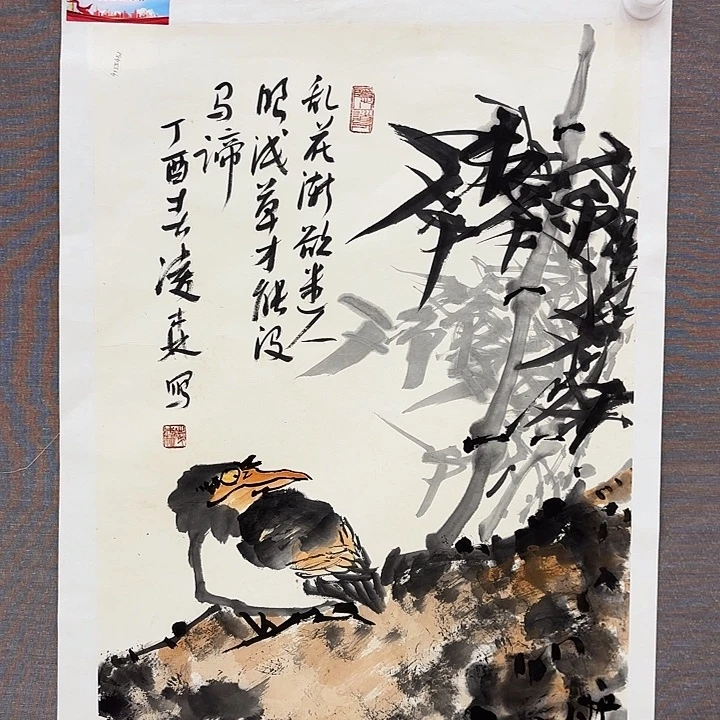 乱花渐欲迷人
眼浅草才能没
马谛
丁酉 凌 写